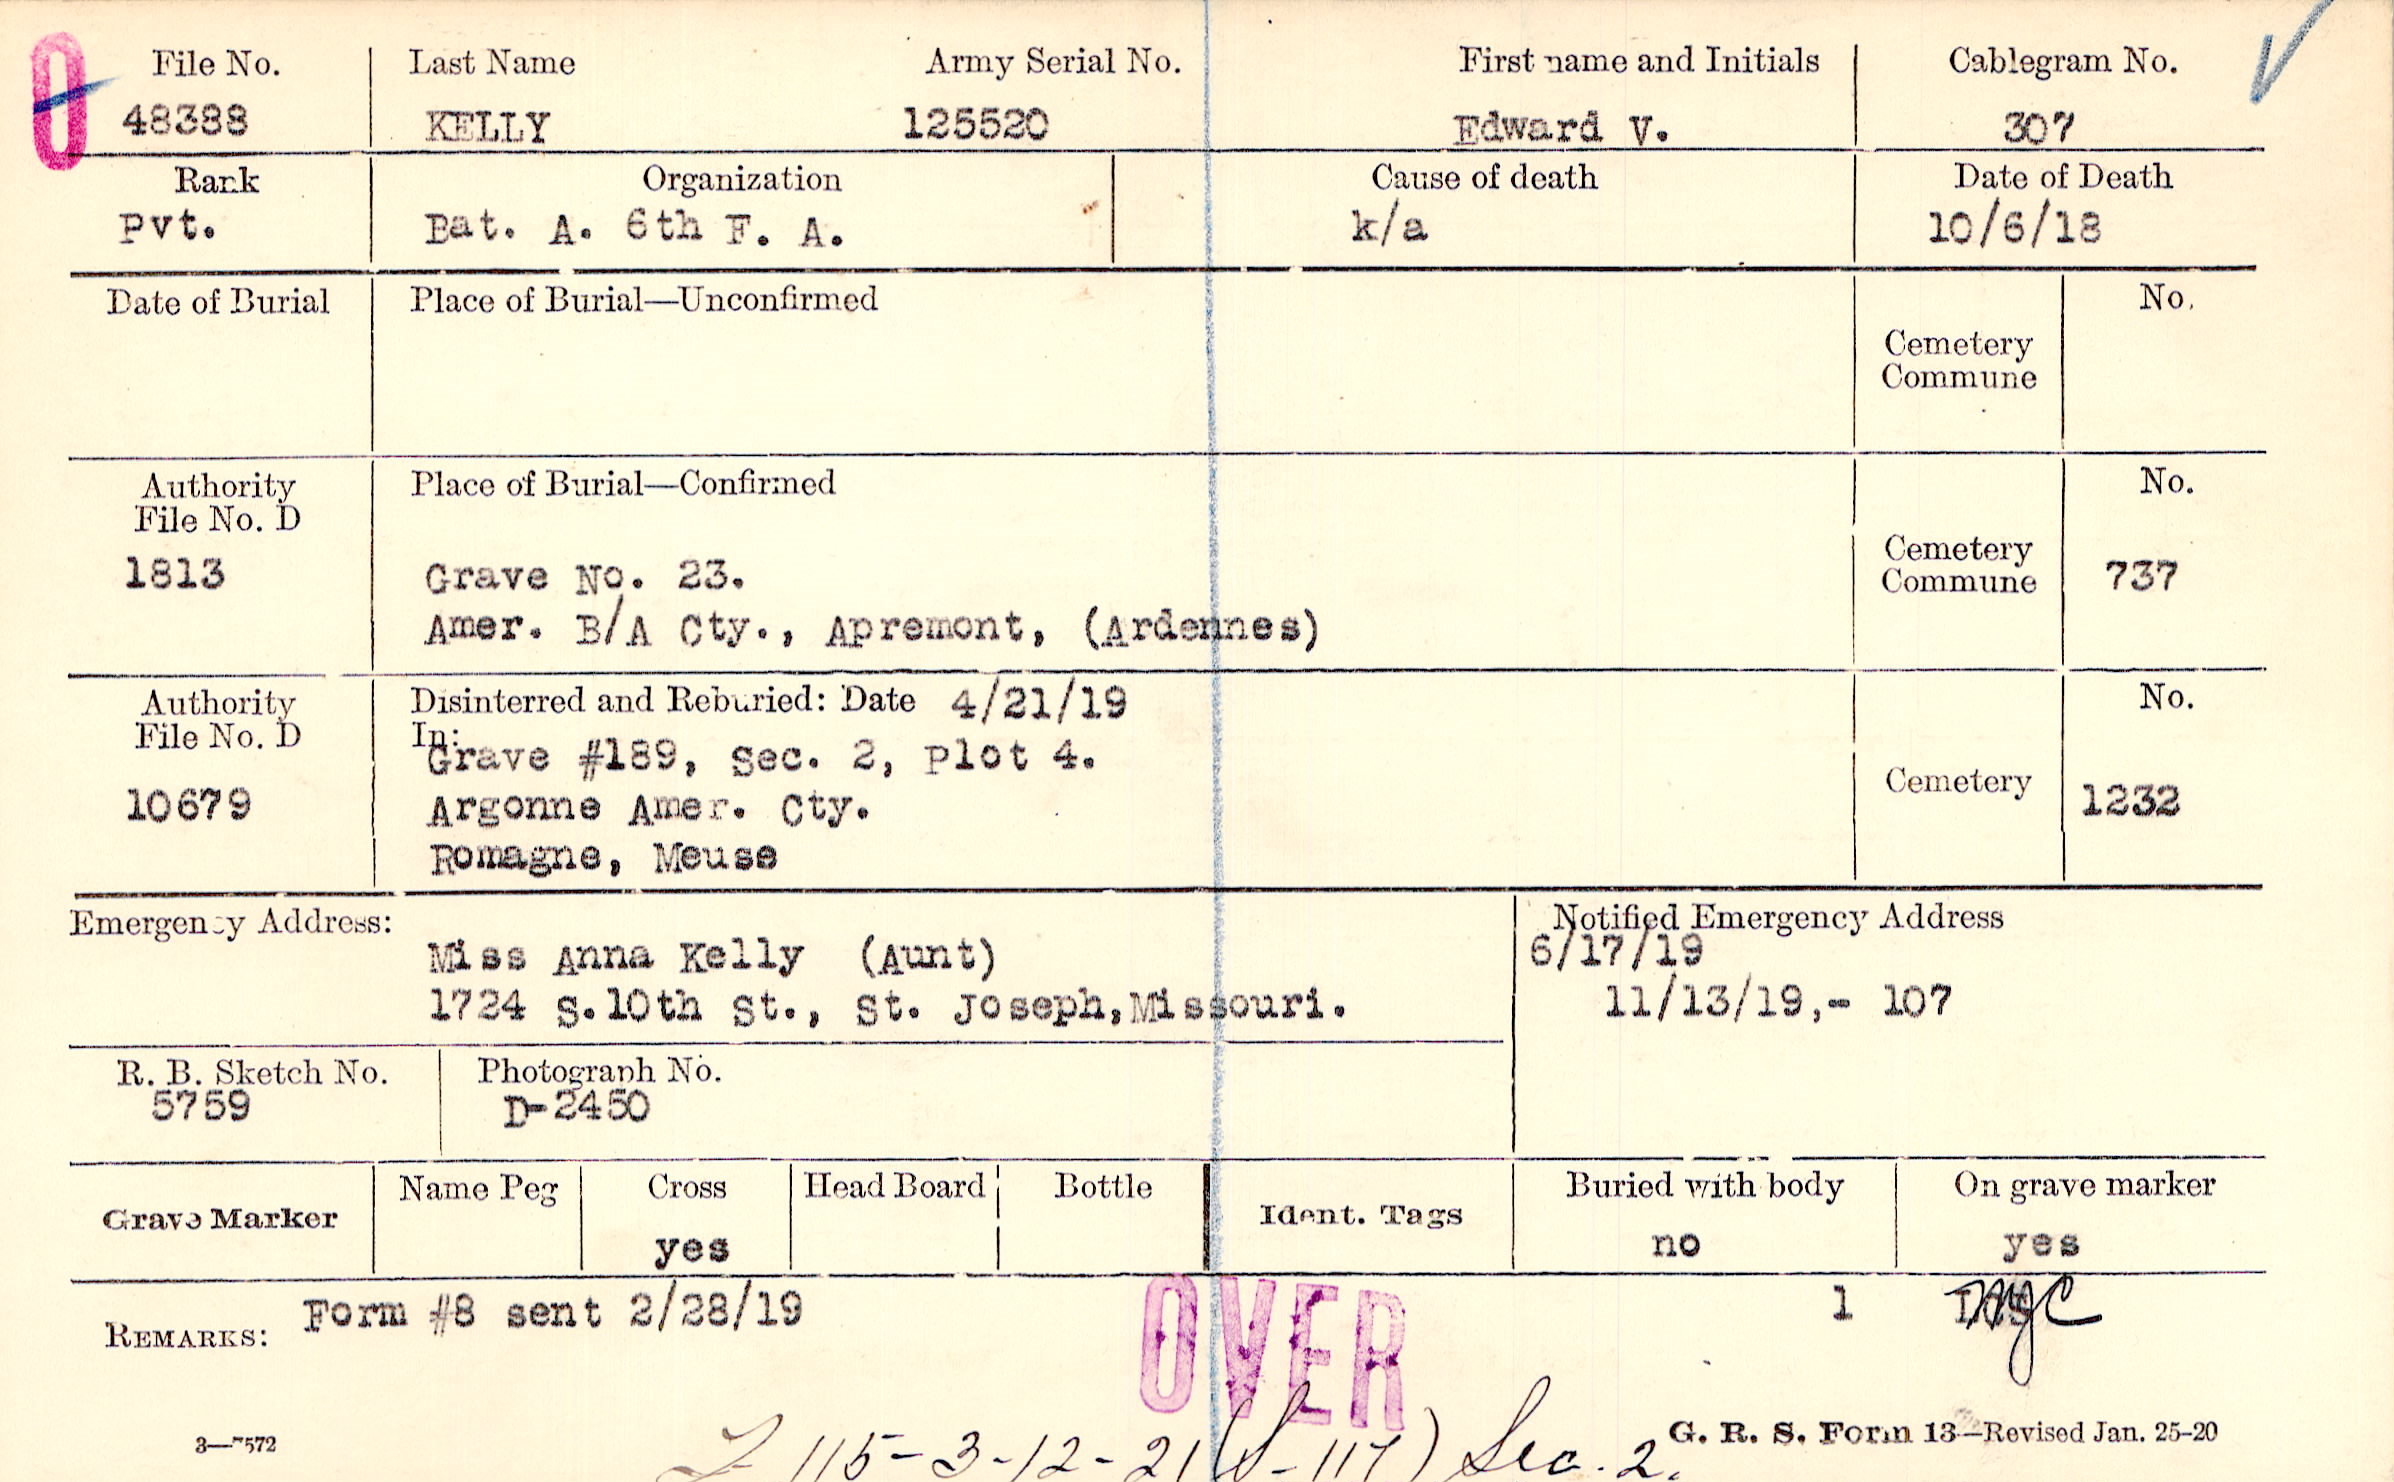 0
File No. Last Name Army Serial No. First name and Initials Cablegram No.
48388 KELLY 125520 Edward V. 307
Rank Organization Cause of death Date of Death
Pvt. Bat. A. 6th F. A. k/a 10/6/18
Date of Burial Place of Burial—Unconfirmed No.
Cemetery
Commune
Authority Place of Burial—Confirmed No.
File No. D
1813 Grave No. 23. Cemetery Commune 737
Amer. B/A Cty., Apremont, (Ardennes)
Authority Disinterred and Reburied: Date 4/21/19 No.
File No. D In:
Grave #189, Sec. 2, Plot 4.
10679 Argonne Amer. Cty. Cemetery 1232
Romagne, Meuse
Emergency Address: Notified Emergency Address
Miss Anna Kelly (Aunt) 6/17/19
1724 S.10th St., St. Joseph,Missouri. 11/13/19,- 107
R. B. Sketch No. Photograph No.
5759 D-2450
Name Peg Cross Head Board Bottle Buried with body On grave marker
Grave Marker Ident. Tags
yes no yes
REMARKS: Form #8 sent 2/28/19 1
OVER
3—7572 G. R. S. Form 13—Revised Jan. 25-20
115-3-12-21(S-117) Sec. 2.